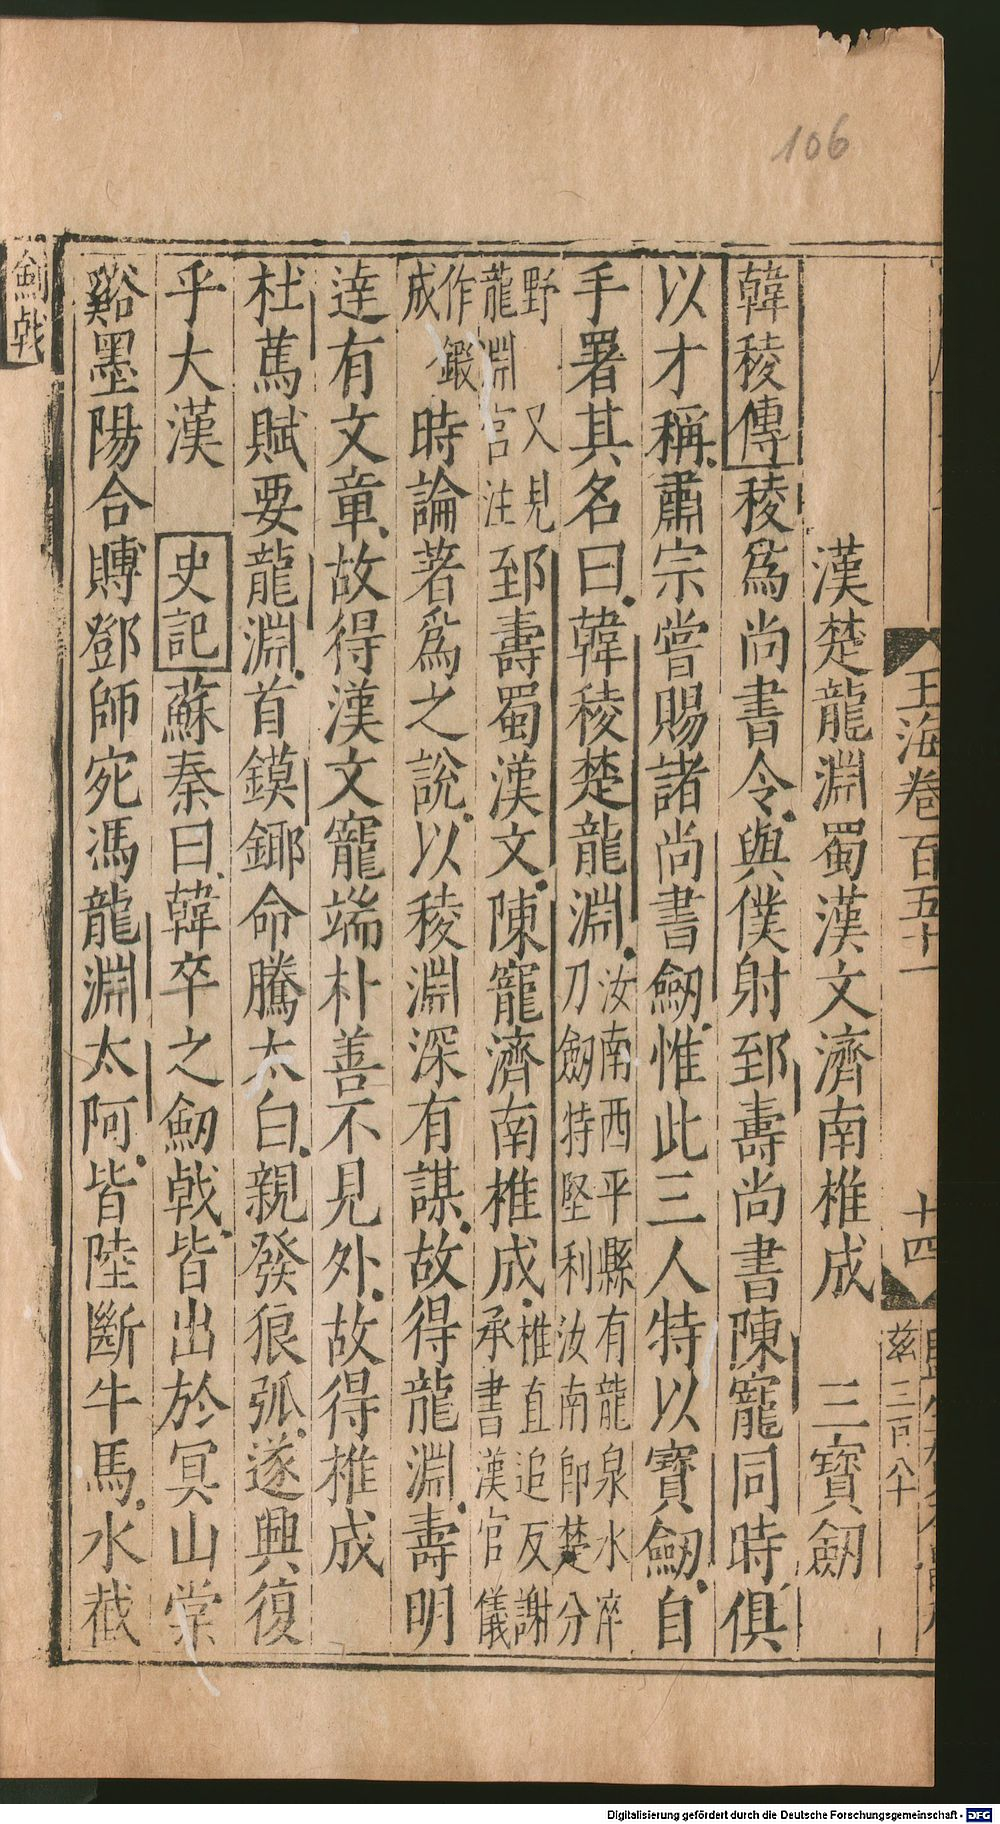 106
玉海卷百五十一
十四
漢楚龍淵蜀漢文濟南椎成　三寶劒
韓稜傳稜爲尚書令與僕射郅壽尚書陳寵同時俱
以才稱肅宗嘗賜諸尚書劒惟此三人特以寶劒自
手署其名曰韓稜楚龍淵汝南西平縣有龍泉水淬
刀劒特堅利汝南卽楚分
野又見
龍淵宮注
郅壽蜀漢文陳寵濟南椎成椎直追反謝
承書漢官儀
作鍛
成
時論者爲之說以稜淵深有謀故得龍淵壽明
達有文章故得漢文寵端朴善不見外故得椎成
杜篤賦要龍淵首鏌鋣命騰太白親發狼弧遂興復
乎大漢　史記蘇秦曰韓卒之劒戟皆出於冥山棠
谿墨陽合賻鄧師宛馮龍淵太阿皆陸斷牛馬水截
劒戟
Digitalisierung gefördert durch die Deutsche Forschungsgemeinschaft - DFG